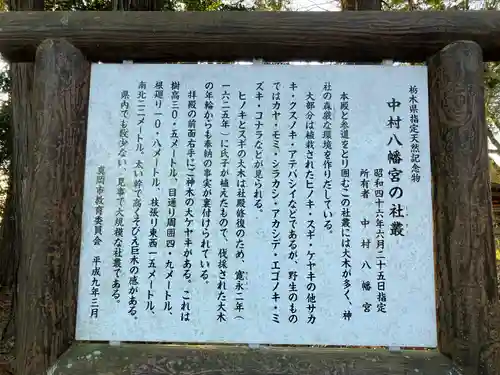 栃木県指定天然記念物
中村八幡宮の社叢
昭和四十六年六月二十五日指定
所有者　中村八幡宮
本殿と参道をとり囲むこの社叢には大木が多く、神
社の森厳な環境を作りだしている。
大部分は植栽されたヒノキ・スギ・ケヤキの他サカ
キ・クスノキ・アテバシイなどであるが、野生のもの
ではカヤ・モミ・シラカシ・アカシデ・エゴノキ・ミ
ズキ・コナラなどが見られる。
ヒノキとスギの大木は社殿修復のため、寛永二年（
一六二五年）に氏子が植えたもので、伐採された大木
の年輪からも奉納の事実が裏付けられている。
拝殿の前面右手にご神木の大ケヤキがある。これは
樹高三〇・五メートル、目通り周囲四・九メートル、
根廻り一〇・八メートル、枝張り東西一五メートル、
南北二二メートル、太い幹で高くそびえ巨木の感がある。
県内でも数少ない、見事で大規模な社叢である。
真岡市教育委員会　平成九年三月